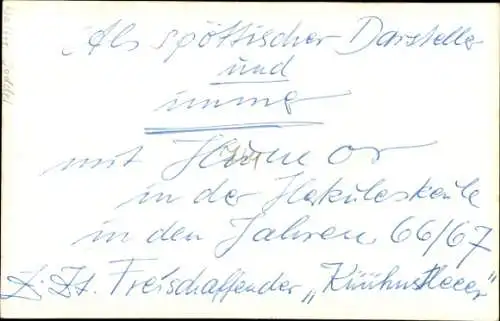 Als spöttischer Darsteller
und
immer
mit Humor
in der Herkuleskeule
in den Jahren 66/67
Z. Zt. Freischaffender „Küühnstleeer"